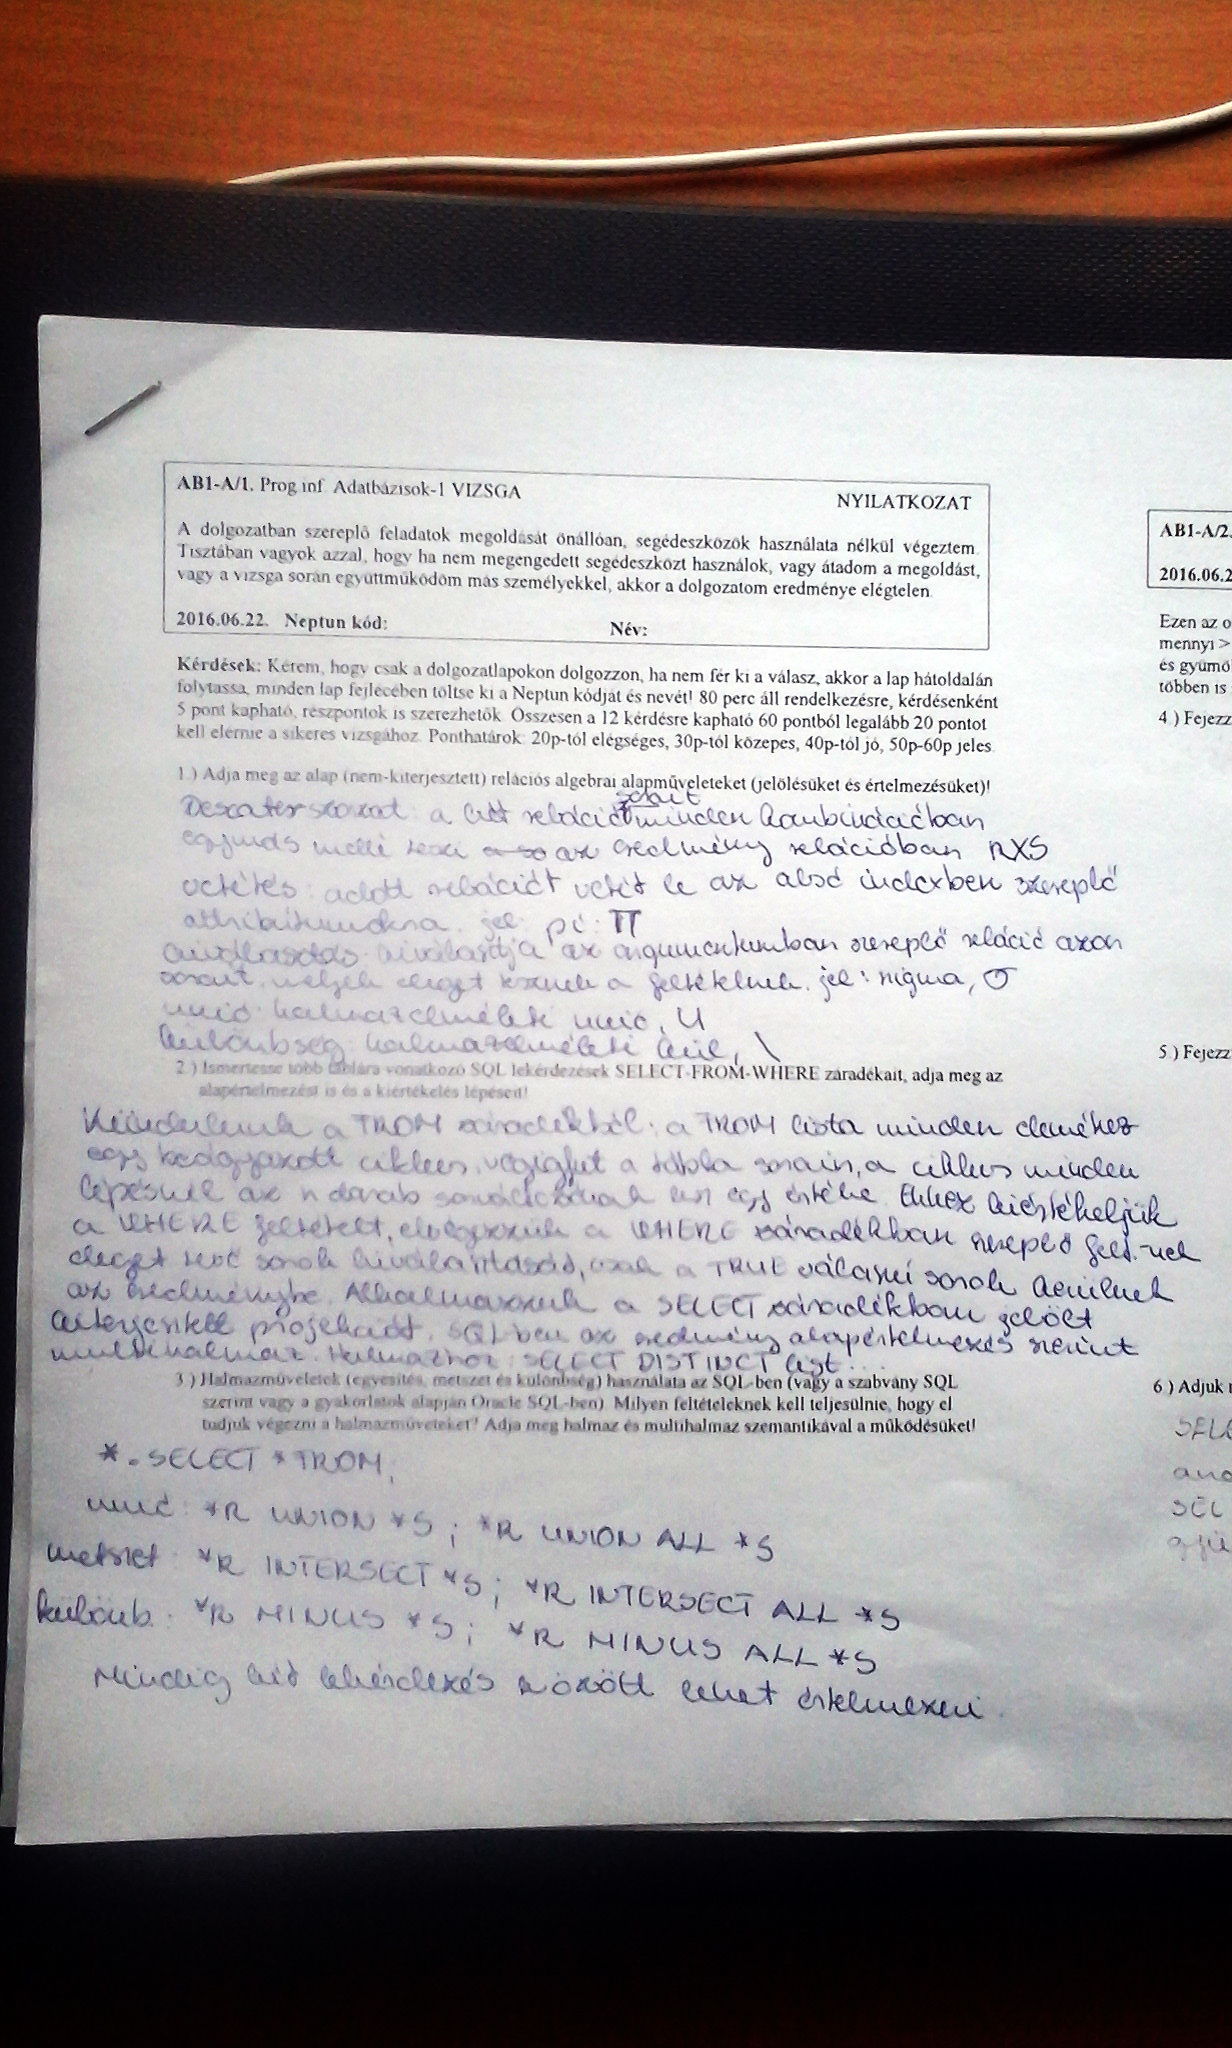 AB1-A/1. Prog.inf. Adatbázisok-1 VIZSGA
NYILATKOZAT
A dolgozatban szereplő feladatok megoldását önállóan, segédeszközök használata nélkül végeztem.
Tisztában vagyok azzal, hogy ha nem megengedett segédeszközt használok, vagy átadom a megoldást,
vagy a vizsga során együttműködöm más személyekkel, akkor a dolgozatom eredménye elégtelen.
2016.06.22. Neptun kód: Név:
Kérdések: Kérem, hogy csak a dolgozatlapokon dolgozzon, ha nem fér ki a válasz, akkor a lap hátoldalán
folytassa, minden lap fejlécében töltse ki a Neptun kódját és nevét! 80 perc áll rendelkezésre, kérdésenként
5 pont kapható, részpontok is szerezhetők. Összesen a 12 kérdésre kapható 60 pontból legalább 20 pontot
kell elérnie a sikeres vizsgához. Ponthatárok: 20p-tól elégséges, 30p-tól közepes, 40p-tól jó, 50p-60p jeles.
1.) Adja meg az alap (nem-kiterjesztett) relációs algebrai alapműveleteket (jelölésüket és értelmezésüket)!
Descartes szorzat: a két reláció sorait minden kombinációban
egymás mellé teszi az eredmény relációban RXS
vetítés: adott relációt vetít le az alsó indexben szereplő
attribútumokra. jel: pi: π
kiválasztás: kiválasztja az argumentumban szereplő reláció azon
sorait, melyek eleget tesznek a feltételnek. jel: sigma, σ
unió: halmazelméleti unió, U
különbség: halmazelméleti kül, \
2.) Ismertesse több táblára vonatkozó SQL lekérdezések SELECT-FROM-WHERE záradékait, adja meg az
alapértelmezést is és a kiértékelés lépéseit!
Kiindulunk a FROM záradékból: a FROM lista minden eleméhez
egy beágyazott ciklus, végigfut a tábla sorain, a ciklus minden
lépésnél az n darab sorváltozónak lesz egy értéke. Ehhez kiértékeljük
a WHERE feltételt, elvégezzük a WHERE záradékban szereplő felt.-nek
eleget tevő sorok kiválasztását, csak a TRUE válaszú sorok kerülnek
az eredménybe. Alkalmazzuk a SELECT záradékban jelölt
kiterjesztett projekciót. SQL-ben az eredmény alapértelmezés szerint
multihalmaz. Halmazhoz: SELECT DISTINCT list...
3.) Halmazműveletek (egyesítés, metszet és különbség) használata az SQL-ben (vagy a szabvány SQL
szerint vagy a gyakorlatok alapján Oracle SQL-ben). Milyen feltételeknek kell teljesülnie, hogy el
tudjuk végezni a halmazműveleteket? Adja meg halmaz és multihalmaz szemantikával a működésüket!
*. SELECT * FROM,
unió: *R UNION *S ; *R UNION ALL *S
metszet: *R INTERSECT *S ; *R INTERSECT ALL *S
különb. *R MINUS *S ; *R MINUS ALL *S
Mindig két lekérdezés között lehet értelmezni.
AB1-A/2.
2016.06.2
Ezen az o
mennyi >
és gyümö
többen is
4.) Fejezz
5.) Fejezz
6.) Adjuk
SELE
and
SEL
gyü